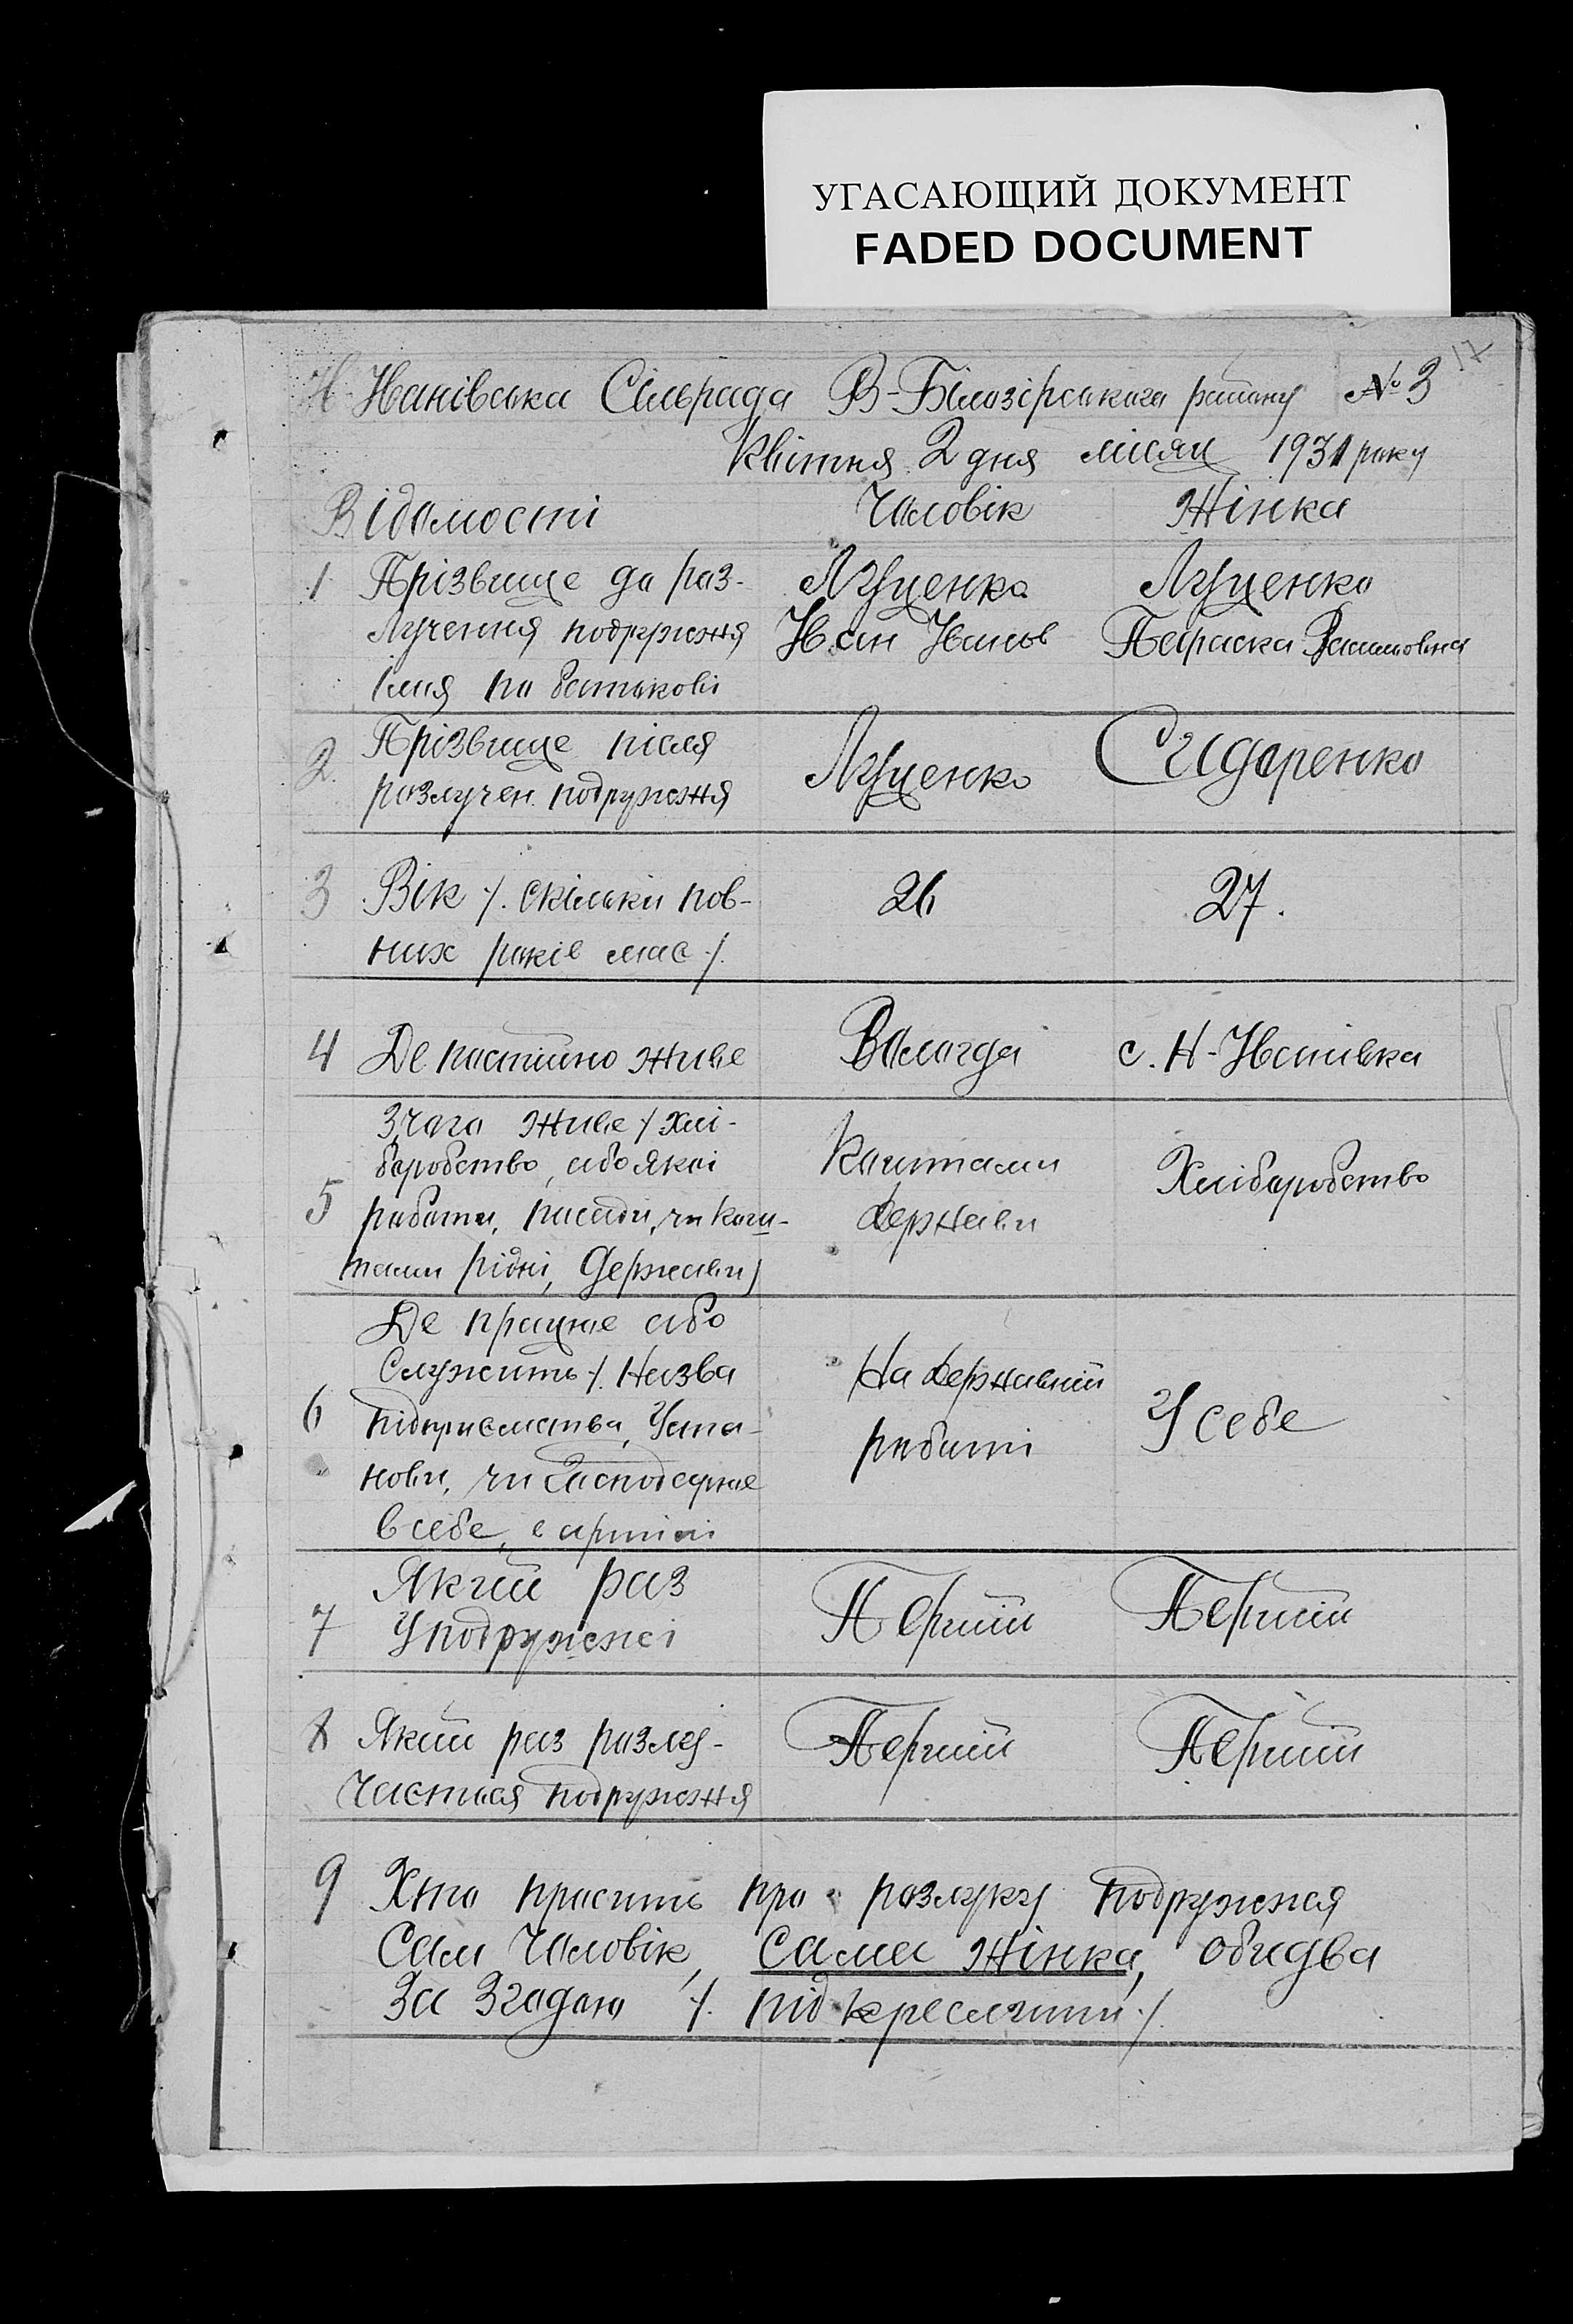 УГАСАЮЩИЙ ДОКУМЕНТ
FADED DOCUMENT
17
Н Іванівська Сільрада В-Білозірського району № 3
Квітня 2 дня місяц 1931 року
Відомости Чоловік Жінка
1 Прізвище до роз- Луценко Луценко
лучення подружжя Іван Іванов Параска
імня по батькові
2. Прізвище після Луценко Сидоренко
розлучен. подружжя
3 Вік /. скільки пов- 26 27.
них років має /.
4 Де постійно живе Вологда с. Н-Іванівка
З чого живе / хлі-
боробство, або якої Коштами Хліборобство
5 роботи, посади, чи кош- держави
тами рідні, держави /
Де працює або
Служить /. Назва На державній
6 підприємства, Уста- роботі У себе
нови, чи Господарює
в себе, в артілі
Який раз Перший Перший
7 У подружжі
8 Який раз розлу- Перший Перший
чається подружжя
9 Хто просить про розлуку подружжя
Сам Чоловік, Сама жінка, обидва
За Згодою /. підкреслити /.